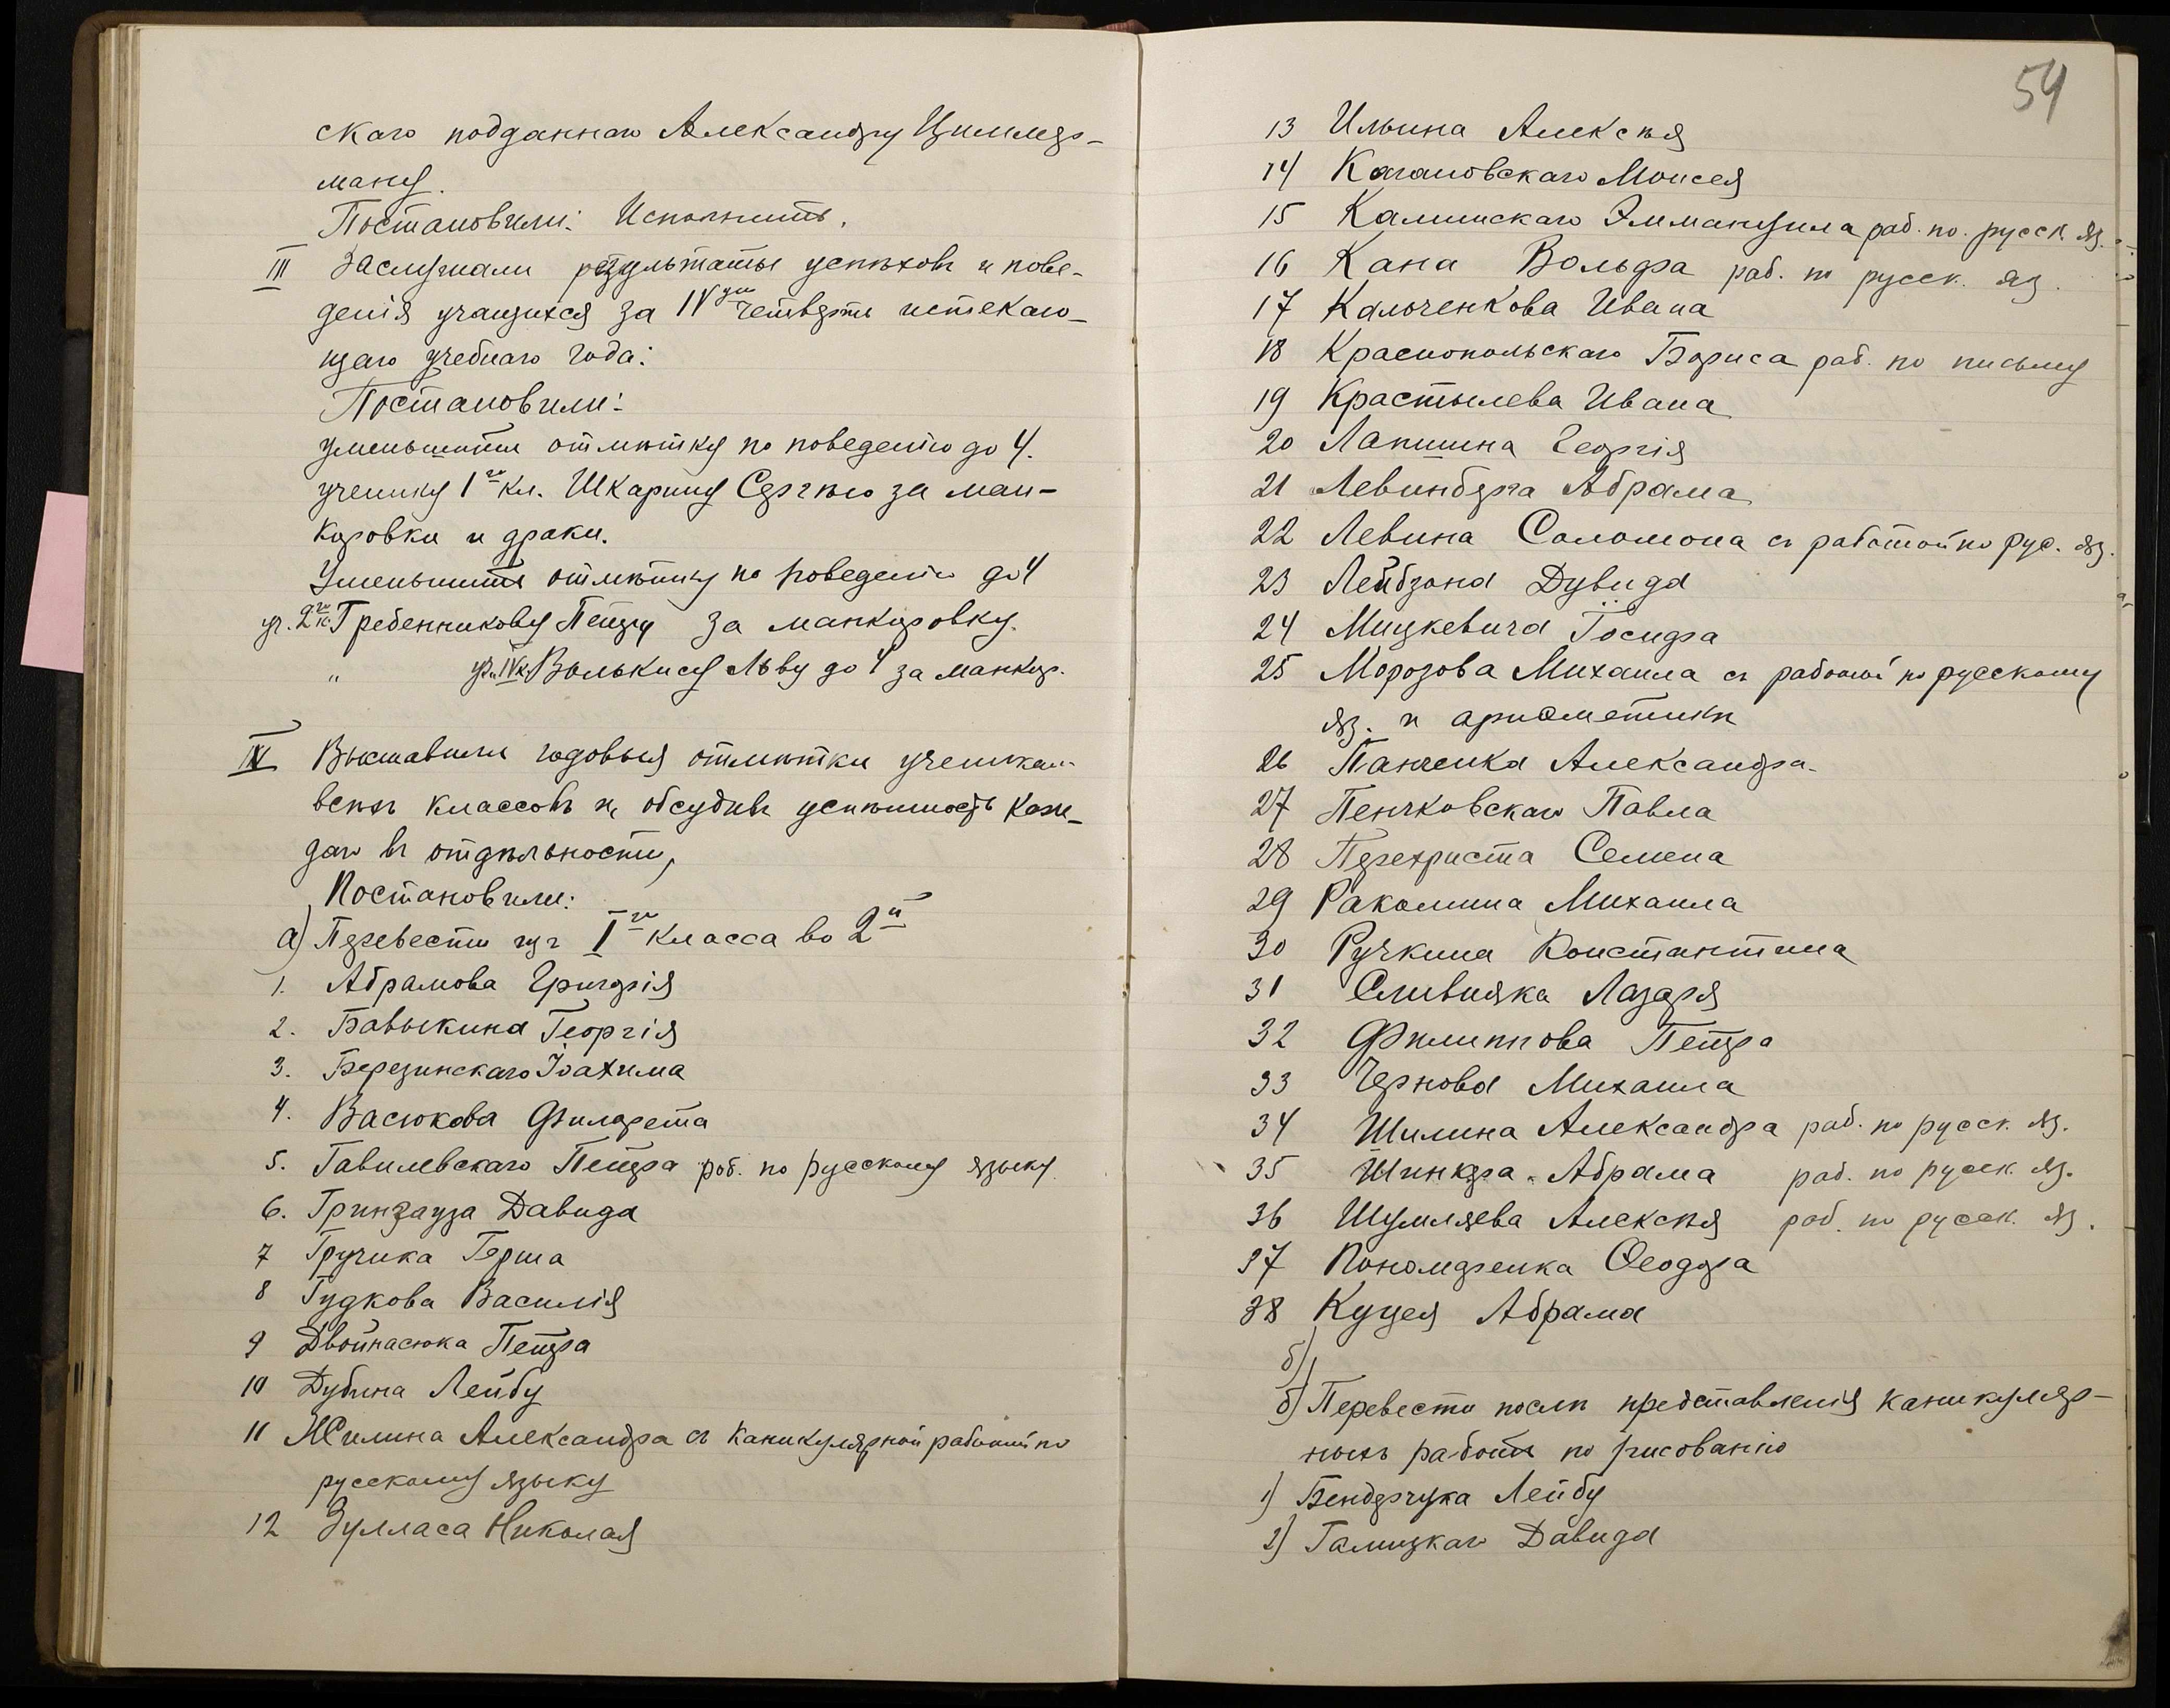 скаго подданнаго Александру Циммер-
ману.
Постановили: Исполнить.
III Заслушали результаты успѣховъ и пове-
денія учащихся за IV ую четверть истекаю-
щаго учебнаго года:
Постановили:
уменьшить отмѣтку по поведенію до 4.
ученику 1го кл. Шкарину Сергѣю за ман-
кировки и драки.
Уменьшить отмѣтку по поведенію до 4
уч. 2го к. Гребенникову Петру за манкировку.
" уч. IV к. Волькису Льву до 4 за манкир.
IV Выставили годовыя отмѣтки ученикам
всѣхъ классовъ и, обсудив успѣшность каж-
даго въ отдѣльности,
Постановили:
а) Перевести изъ I го класса во 2й
1. Абрамова Григорія
2. Бавыкина Георгія
3. Березинскаго Іоахима
4. Васюкова Филарета
5. Гавилевскаго Петра раб. по русскому языку.
6. Гринзауза Давида
7 Гручика Герша
8 Гудкова Василія
9 Двойнасюка Петра
10 Дубина Лейбу
11 Жилина Александра съ каникулярной работой по
русскому языку
12 Зулласа Николая
54
13 Ильина Алексѣя
14 Кагановскаго Моисея
15 Калминскаго Эммануила раб. по. русск. яз.
16 Кана Вольфа раб. по русск. яз.
17 Кальченкова Ивана
18 Краснопольскаго Бориса раб. по письму
19 Крастылева Ивана
20 Лапшина Георгія
21 Левинберга Абрама
22 Левина Соломона съ работой по рус. яз.
23 Лейбзона Дувида
24 Мицкевича Іосифа
25 Морозова Михаила съ работой по русскому
яз. и ариѳметикѣ
26 Панченка Александра.
27 Пенчковскаго Павла
28 Перехриста Семена
29 Раколина Михаила
30 Ручкина Константина
31 Сливняка Лазаря
32 Филиппова Петра
33 Чернова Михаила
34 Шилина Александра раб. по русск. яз.
35 Шинкера Абрама раб. по русск. яз.
36 Шумляева Алексѣя раб. по русск. яз.
37 Пономаренка Ѳеодора
38 Куцея Абрама
б)
б) Перевести послѣ представленія каникуляр-
ныхъ работъ по рисованію
1) Бендерчука Лейбу
2) Галицкаго Давида